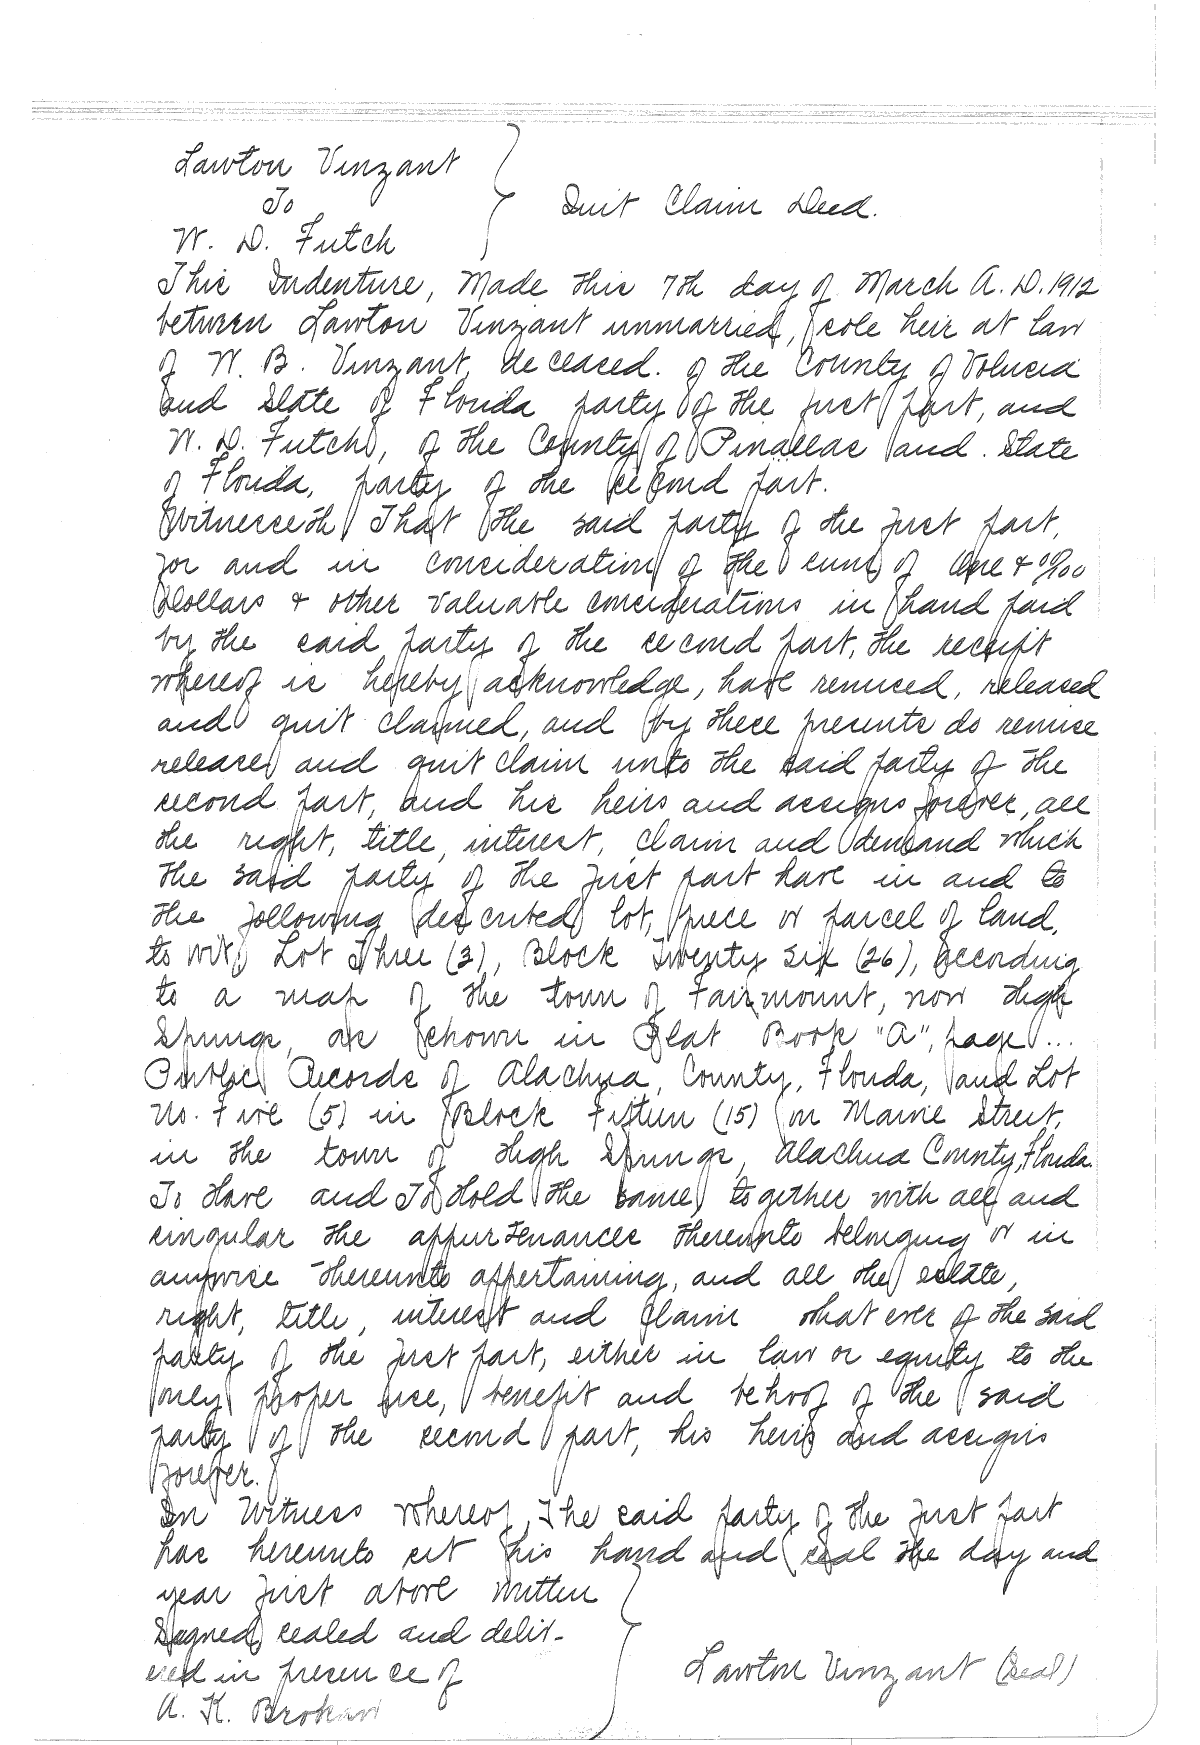 Lawton Vinzant
To
Quit Claim Deed.
W. D. Futch
This Indenture, Made this 7th day of March A. D. 1912
between Lawton Vinzant unmarried, sole heir at law
of W. B. Vinzant, deceased. of the County of Volusia
and State of Florida party of the first part, and
W. D. Futch, of the County of Pinallas and. State
of Florida, party of the second part.
Witnesseth That the said party of the first part,
for and in consideration of the sum of One & 00/100
Dollars & other valuable considerations in hand paid
by the said party of the second part, the receipt
whereof is hereby acknowledge, have remised, released
and quit claimed, and by these presents do remise
release and quit claim unto the said party of the
second part, and his heirs and assigns forever, all
the right, title, interest, claim and demand which
the said party of the first part have in and to
the following described lot, piece or parcel of land,
to wit, Lot Three (3), Block Twenty Six (26), according
to a map of the town of Fairmount, now High
Springs, as shown in Plat Book "A", page ...
Public Records of Alachua, County, Florida, and Lot
No. Five (5) in Block Fifteen (15) on Maine Street,
in the town of High Springs, Alachua County, Florida.
To Have and To Hold the same together with all and
singular the appurtenances thereunto belonging or in
anywise thereunto appertaining, and all the estate,
right, title, interest and claim what ever of the said
party of the first part, either in law or equity to the
only proper use, benefit and behoof of the said
party of the second part, his heirs and assigns
forever.
In Witness Whereof, The said party of the first part
has hereunto set his hand and seal the day and
year first above written
Signed, sealed and deliv-
ered in presence of
Lawton Vinzant (Seal)
A. K. Brokaw